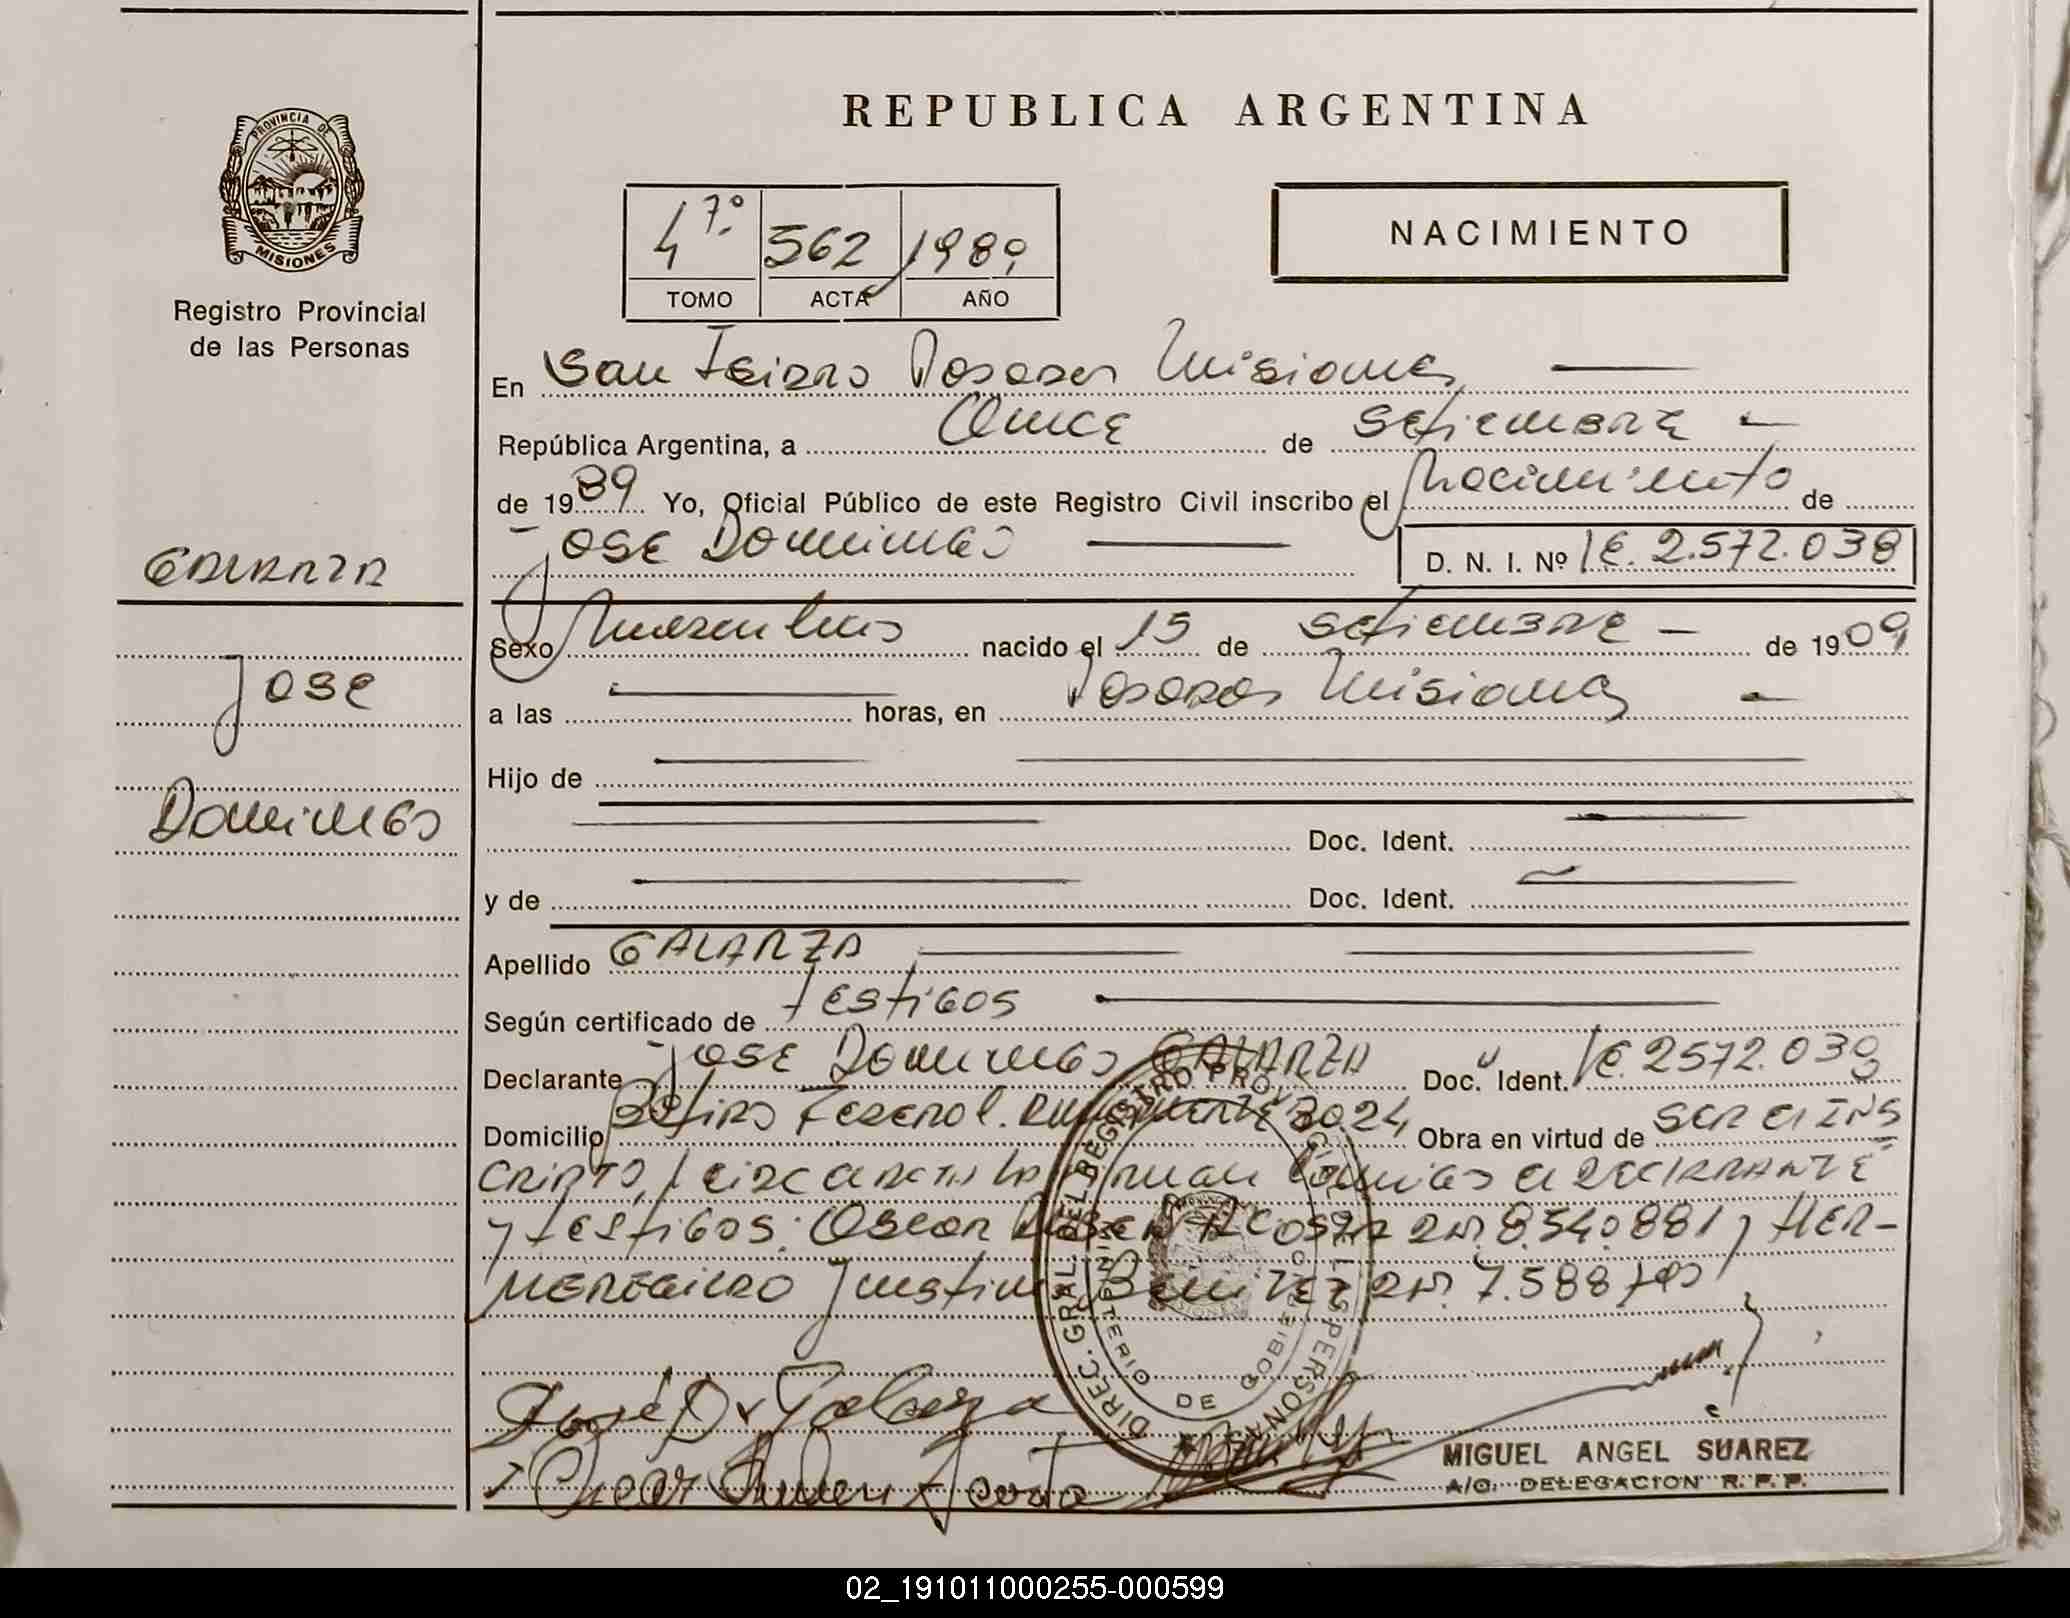 REPUBLICA ARGENTINA
PROVINCIA DE
MISIONES
Registro Provincial
de las Personas
4 7º
562
1989
TOMO
ACTA
AÑO
NACIMIENTO
En San Isidro Posadas Misiones
República Argentina, a Quince de setiembre
de 1989 Yo, Oficial Público de este Registro Civil inscribo el Nacimiento de
JOSE DOMINGO
D. N. I. Nº 1E. 2.572.038
GALARZA
Sexo Masculino nacido el 15 de setiembre de 1909
JOSE
a las horas, en Posadas Misiones
Hijo de
DOMINGO
Doc. Ident.
y de Doc. Ident.
Apellido GALARZA
Según certificado de testigos
Declarante JOSE DOMINGO GALARZA Doc. Ident. 1E. 2572.038
Domicilio Retiro Federal. 3024 Obra en virtud de SER EL INS
CRIPTO, firman conmigo el DECLARANTE
y testigos: Oscar Ruben ACOSTA DNI. 8.540.881 y HER-
MENEGILDO Justino Benitez DNI. 7.588
DIREC. GRAL. DEL REGISTRO PROVINCIAL DE LAS PERSONAS
MINISTERIO DE GOBIERNO
José D. Galarza
Oscar Ruben Acosta
MIGUEL ANGEL SUAREZ
A/C. DELEGACION R. P. P.
02_191011000255-000599